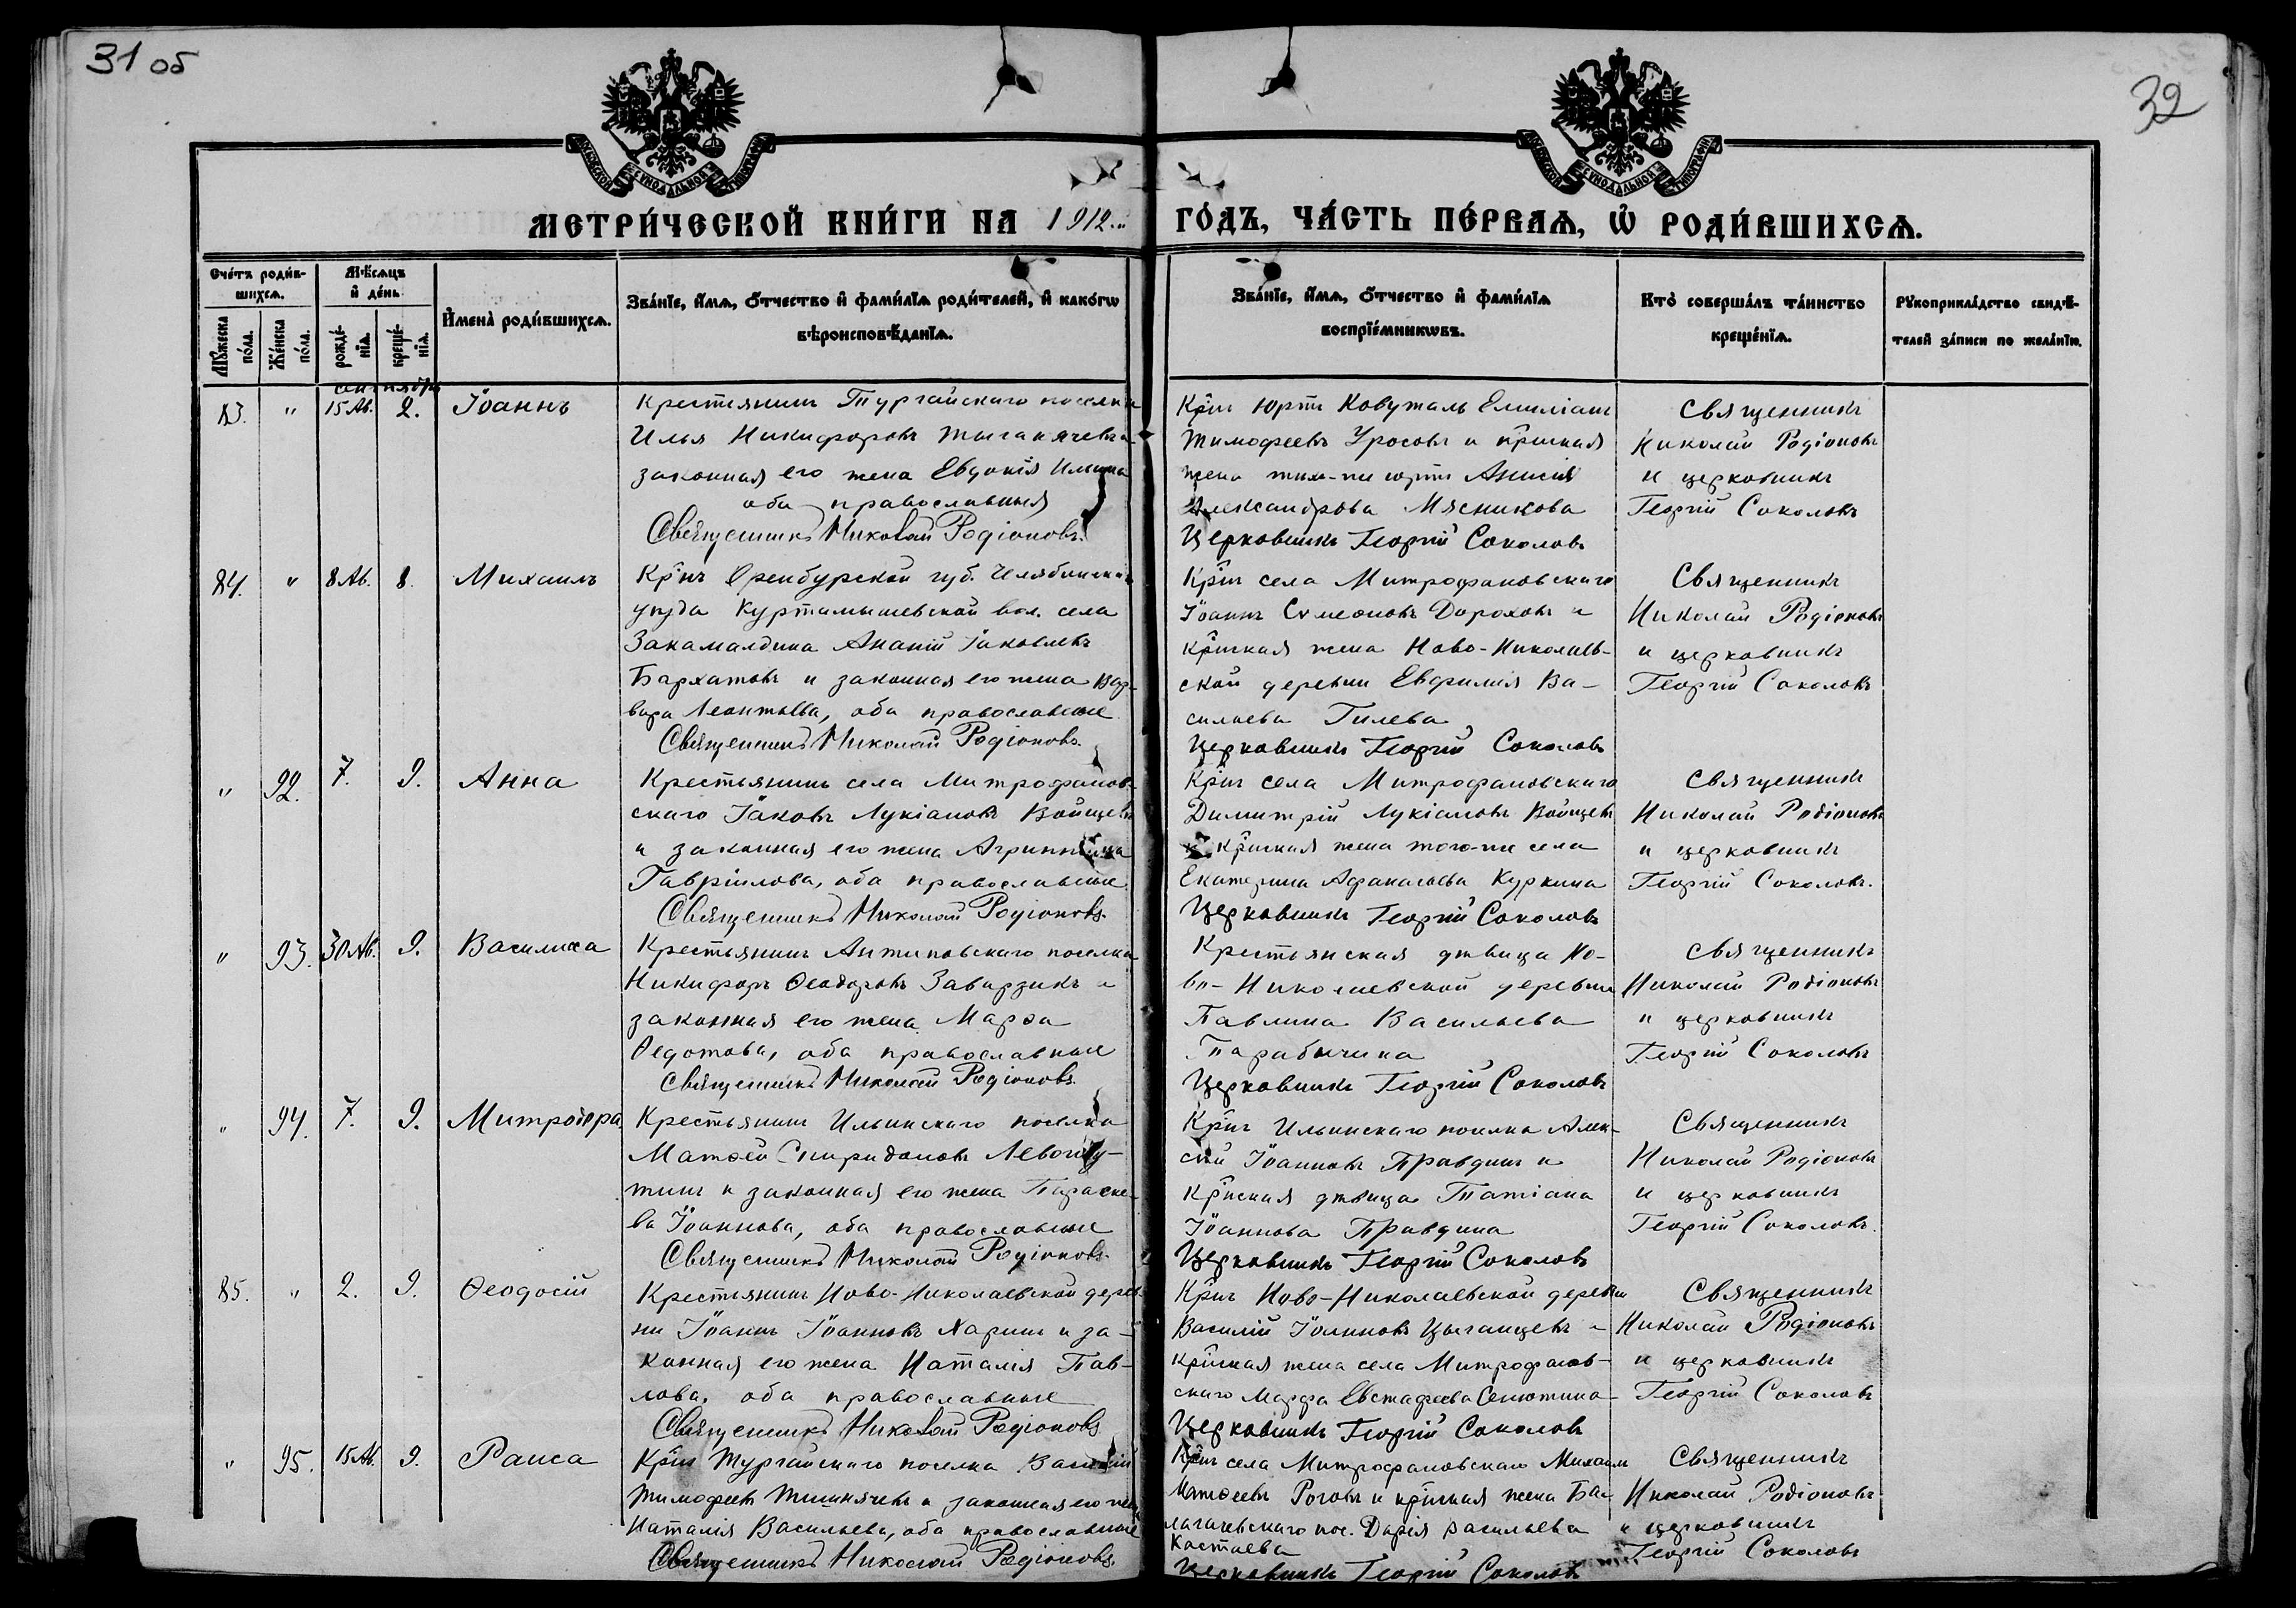 31 об
32
МОСКОВСКОЙ СУНОДАЛЬНОЙ ТИПОГРАФІИ
МОСКОВСКОЙ СУНОДАЛЬНОЙ ТИПОГРАФІИ
МЕТРИ́ЧЕСКОЙ КНИ́ГИ НА 1912 ГО́ДЪ, ЧА́СТЬ ПЕ́РВАѦ, Ѿ РОДИ́ВШИХСѦ.
Сче́тъ роди́вшихсѧ.
Мѣ́сѧцъ и҆ де́нь.
И҆мена̀ роди́вшихсѧ.
Зва́нїе, и҆́мѧ, ѻ҆́тчество и҆ фамі́лїѧ роди́телей, и҆ како́гѡ вѣроисповѣ́данїѧ.
Зва́нїе, и҆́мѧ, ѻ҆́тчество и҆ фамі́лїѧ воспрїе́мниковъ.
Кто̀ соверша́лъ та́инство креще́нїѧ.
Рꙋкоприкла́дство свидѣ́телей за́писи по жела́нїю.
Мꙋ́жеска по́ла.
Же́нска по́ла.
рожде́нїѧ.
креще́нїѧ.
сентябрь
83. " 15 Ав. 2. Іоаннъ
Крестьянинъ Тургайскаго поселка
Илья Никифоровъ
законная его жена Евдокія
оба православныя
Священникъ Николай Родіоновъ.
Кр҃нъ юртъ
Тимофеевъ Уросовъ и кр҃нская
жена Анисія
Александрова Мясникова
Церковникъ Георгій Соколовъ
Священникъ
Николай Родіоновъ
и церковникъ
Георгій Соколовъ
84. " 8 Ав. 8. Михаилъ
Кр҃нъ Оренбурской губ. Челябинскаго
уѣзда Куртамышевской вол. села
Закамалдина Ананій Іаковлевъ
Бархатовъ и законная его жена Вар-
вара Леонтьева, оба православные
Священникъ Николай Родіоновъ.
Кр҃нъ села Митрофановскаго
Іоаннъ Сѵмеоновъ Дороховъ и
кр҃нская жена Ново-Николаев-
ской деревни Евфимія Ва-
сильева Гилева
Церковникъ Георгій Соколовъ
Священникъ
Николай Родіоновъ
и церковникъ
Георгій Соколовъ
" 92. 7. 9. Анна
Крестьянинъ села Митрофанов-
скаго Іаковъ Лукіановъ Войцевъ
и законная его жена Агриппина
Гавріилова, оба православные
Священникъ Николай Родіоновъ.
Кр҃нъ села Митрофановскаго
Димитрій Лукіановъ Войцевъ
и кр҃нская жена того-же села
Екатерина Афанасьева Куркина
Церковникъ Георгій Соколовъ
Священникъ
Николай Родіоновъ
и церковникъ
Георгій Соколовъ.
" 93. 30 Ав. 9. Василиса
Крестьянинъ Антиповскаго поселка
Никифоръ Ѳеодоровъ Заварзинъ и
законная его жена Марѳа
Ѳедотова, оба православные
Священникъ Николай Родіоновъ.
Крестьянская дѣвица Но-
во-Николаевской деревни
Павлина Васильева
Тарабычина
Церковникъ Георгій Соколовъ
Священникъ
Николай Родіоновъ
и церковникъ
Георгій Соколовъ
" 94. 7. 9. Митродора
Крестьянинъ Ильинскаго поселка
Матѳей Спиридоновъ
и законная его жена Параске-
ва Іоаннова, оба православные
Священникъ Николай Родіоновъ.
Кр҃нъ Ильинскаго поселка Алек-
сѣй Іоанновъ Правдинъ и
кр҃нская дѣвица Татіана
Іоаннова Правдина
Церковникъ Георгій Соколовъ
Священникъ
Николай Родіоновъ
и церковникъ
Георгій Соколовъ.
85. " 2. 9. Ѳеодосій
Крестьянинъ Ново-Николаевской дерев-
ни Іоаннъ Іоанновъ Харинъ и за-
конная его жена Наталія Пав-
лова, оба православные
Священникъ Николай Родіоновъ
Кр҃нъ Ново-Николаевской деревни
Василій Іоанновъ Цыганцевъ и
кр҃нская жена села Митрофанов-
скаго Марфа Евстафіева Сенютина
Церковникъ Георгій Соколовъ
Священникъ
Николай Родіоновъ
и церковникъ
Георгій Соколовъ
" 95. 15 Ав. 9. Раиса
Кр҃нъ Тургайскаго поселка Василій
Тимофеевъ и законная его жена
Наталія Васильева, оба православные
Священникъ Николай Родіоновъ.
Кр҃нъ села Митрофановскаго Михаилъ
Матѳеевъ Роговъ и кр҃нская жена Ба-
лагаевскаго пос. Дарія Васильева
Костаева
Церковникъ Георгій Соколовъ
Священникъ
Николай Родіоновъ
и церковникъ
Георгій Соколовъ